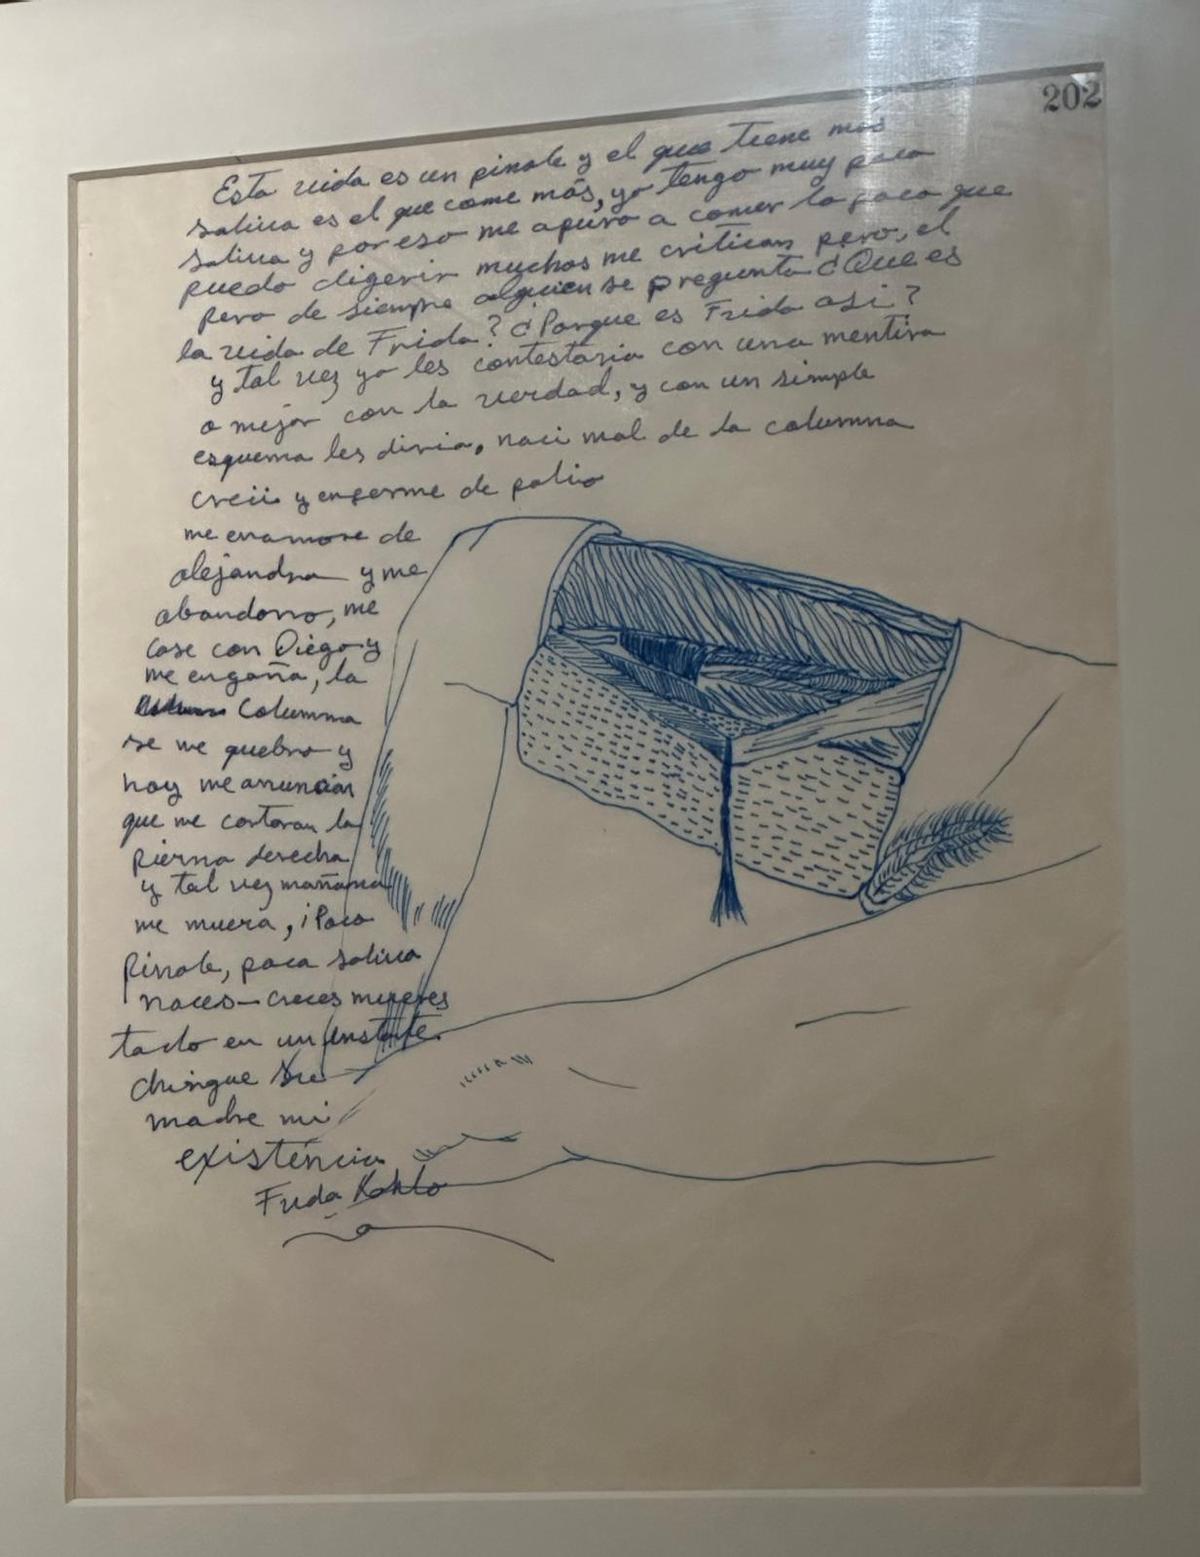 202
Esta vida es un pinole y el que tiene más
saliva es el que come más, yo tengo muy poca
saliva y por eso me apuro a comer lo poco que
puedo digerir muchos me critican pero, el
pero de siempre alguien se pregunta ¿Que es
la vida de Frida? ¿Porque es Frida asi?
y tal vez yo les contestaria con una mentira
o mejor con la verdad, y con un simple
esquema les diria, naci mal de la columna
creci y enferme de polio
me enamore de
alejandro y me
abandono, me
case con Diego y
me engaña, la
columna
se me quebro y
hoy me anuncian
que me cortaran la
pierna derecha
y tal vez mañana
me muera, ¡Poco
Pinole, poca saliva
naces-creces mueres
todo en un instante.
chingue su
madre mi
existencia
Frida Kahlo